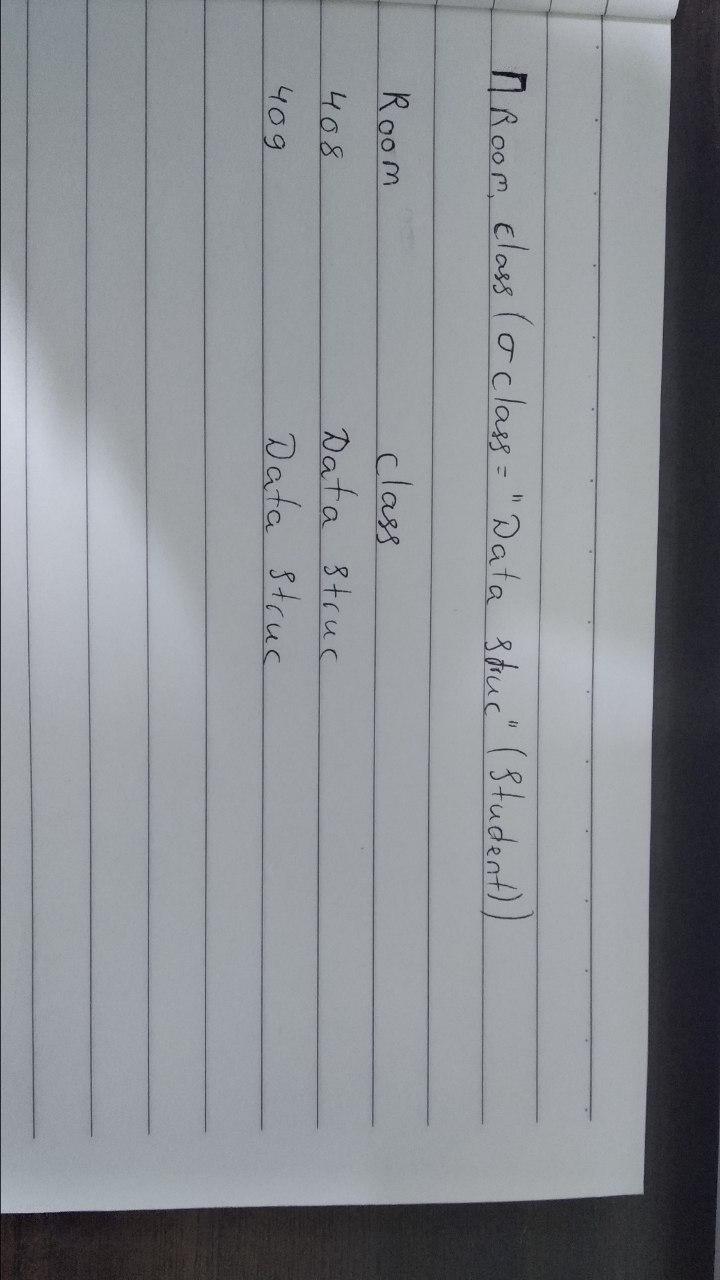 Π Room, class (σ class = "Data struc" (student))
Room class
408 Data struc
409 Data struc